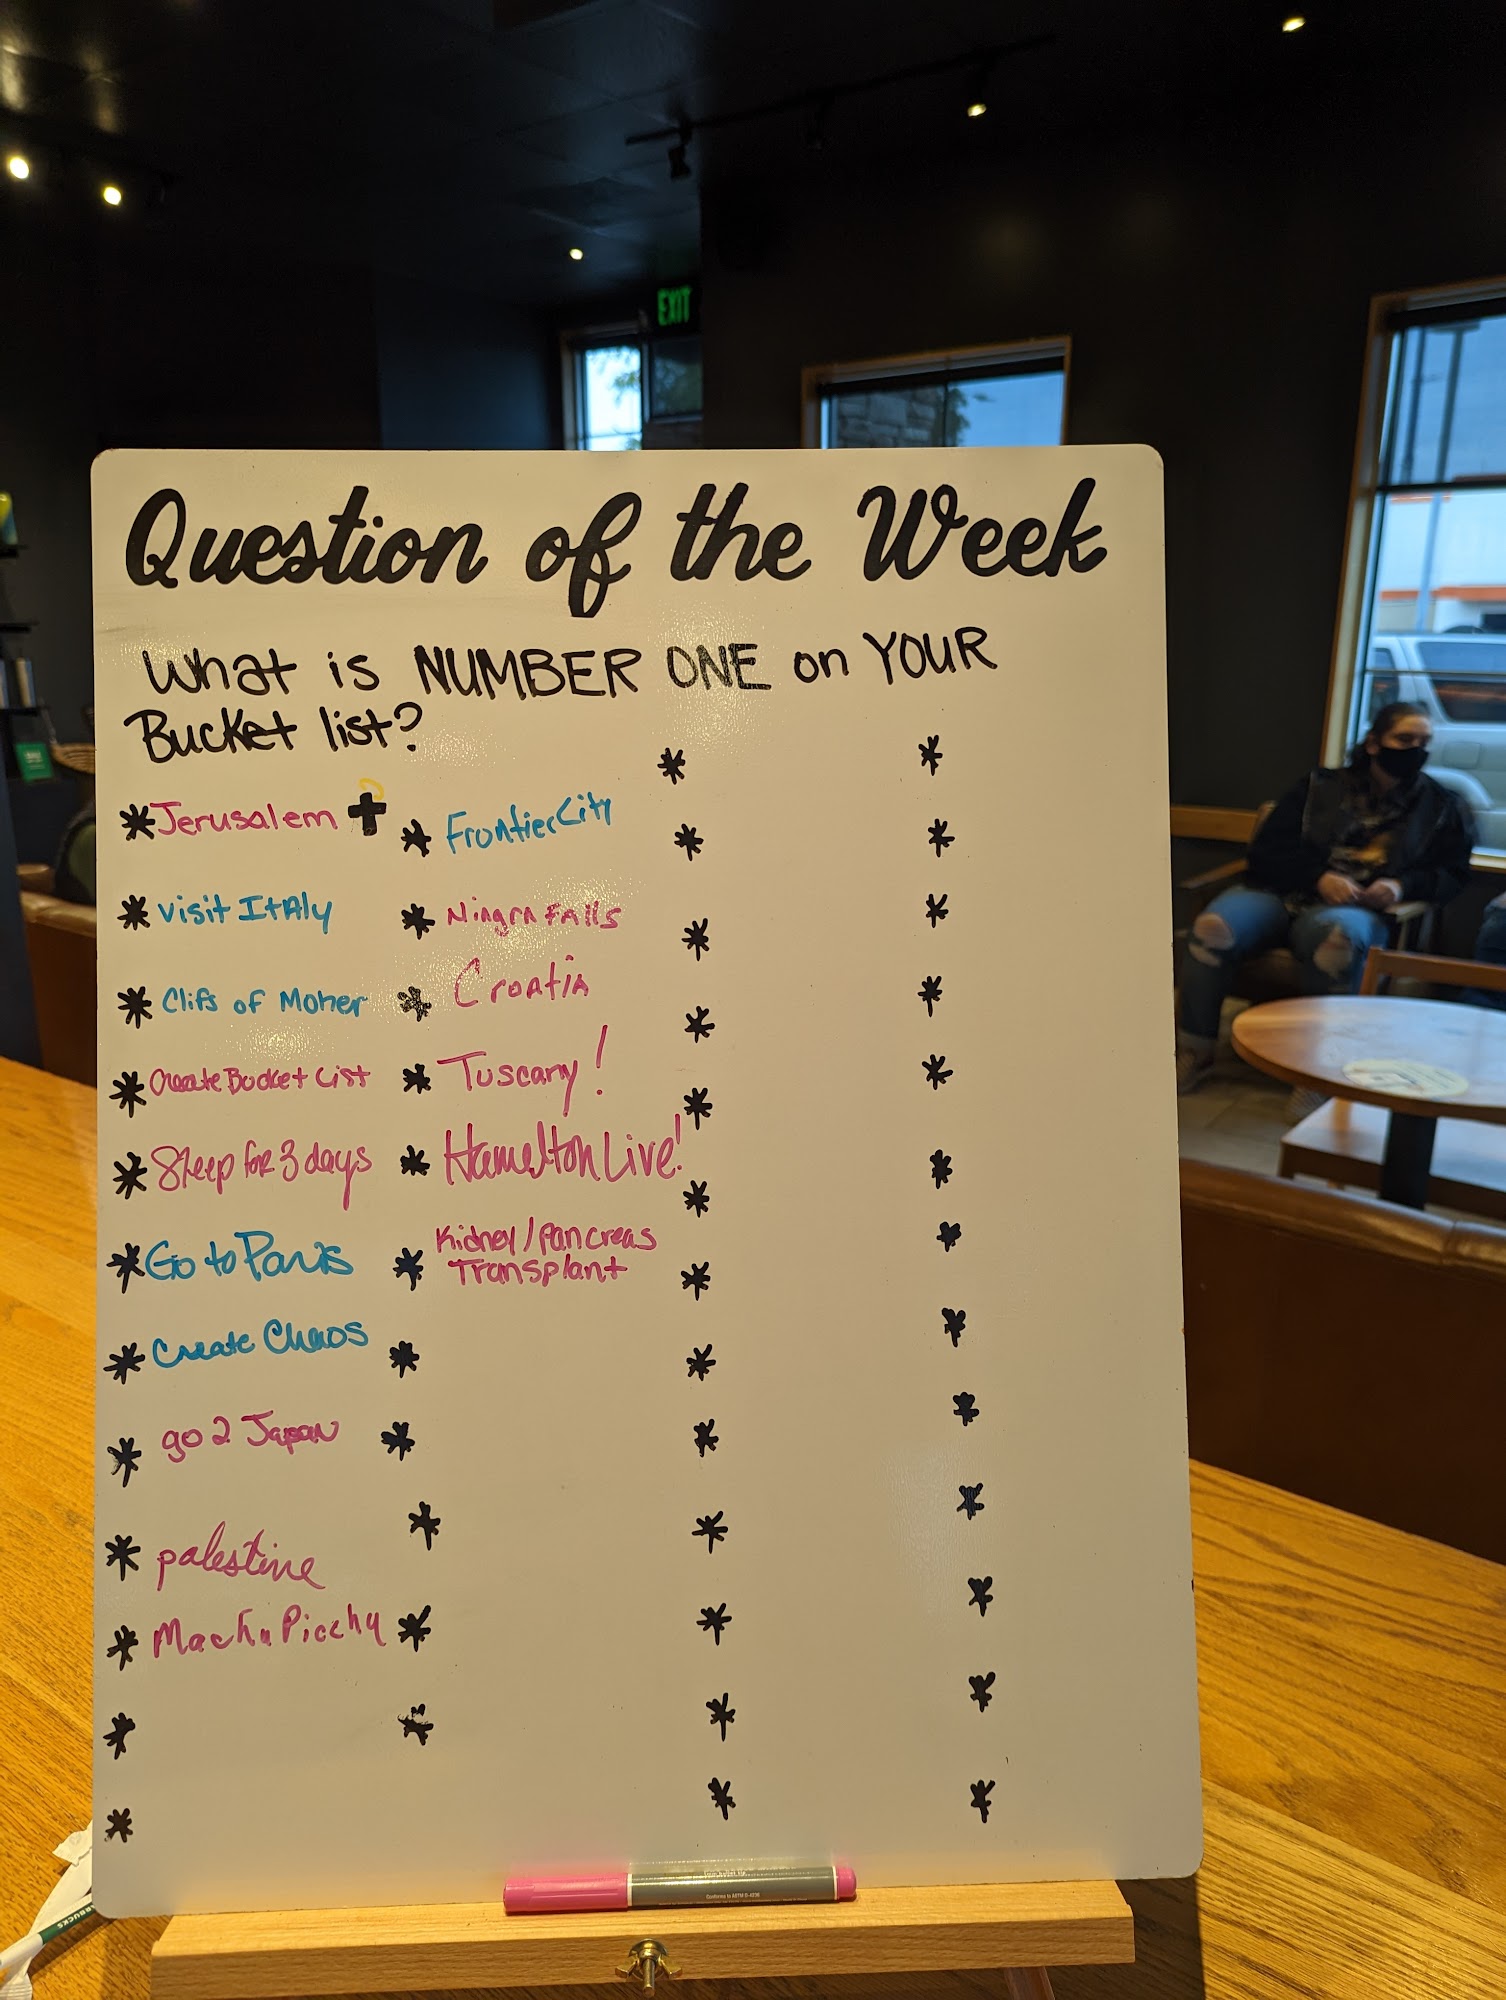 EXIT
Question of the Week
What is NUMBER ONE on YOUR
Bucket list?
Jerusalem
visit ItAly
Clifs of Moher
Create Bucket List
Sleep for 3 days
Go to Paris
Create Chaos
go 2 Japan
palestine
Machu Picchu
Frontier City
Niagra Falls
Croatia
Tuscany!
Hamelton Live!
Kidney/Pancreas
Transplant